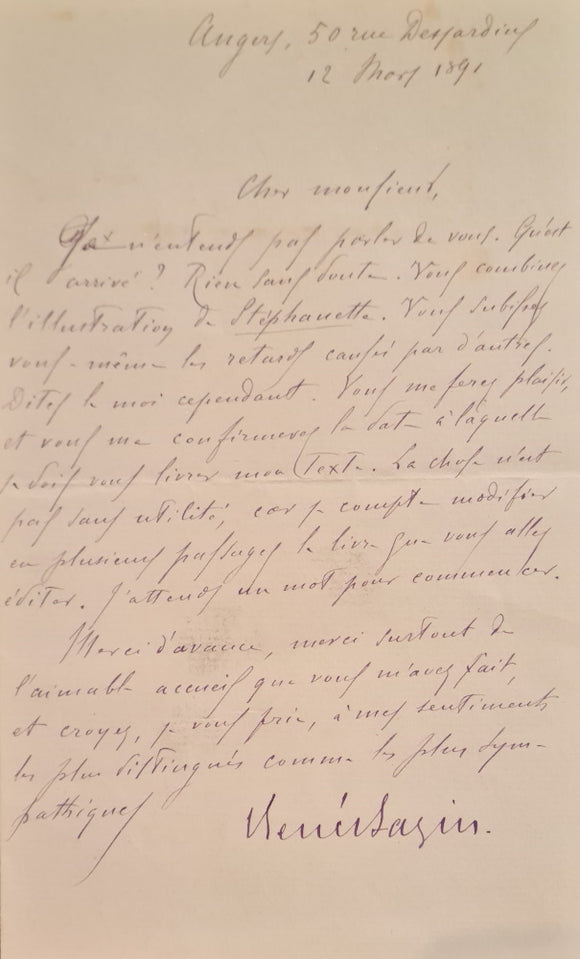 Angers, 50 rue Desjardins
12 Mars 1891
Cher monsieur,
n'entends pas parler de vous. Qu'est
il arrivé ? Rien sans doute. Vous combinez
l'illustration de Stéphanette. Vous subissez
vous-même les retards causés par d'autres.
Dites le moi cependant. Vous me ferez plaisir,
et vous me confirmerez la date à laquelle
je dois vous livrer mon texte. La chose n'est
pas sans utilité, car je compte modifier
en plusieurs passages le livre que vous allez
éditer. J'attends un mot pour commencer.
Merci d'avance, merci surtout de
l'aimable accueil que vous m'avez fait,
et croyez, je vous prie, à mes sentiments
les plus distingués comme les plus sym-
pathiques
René Bazin.